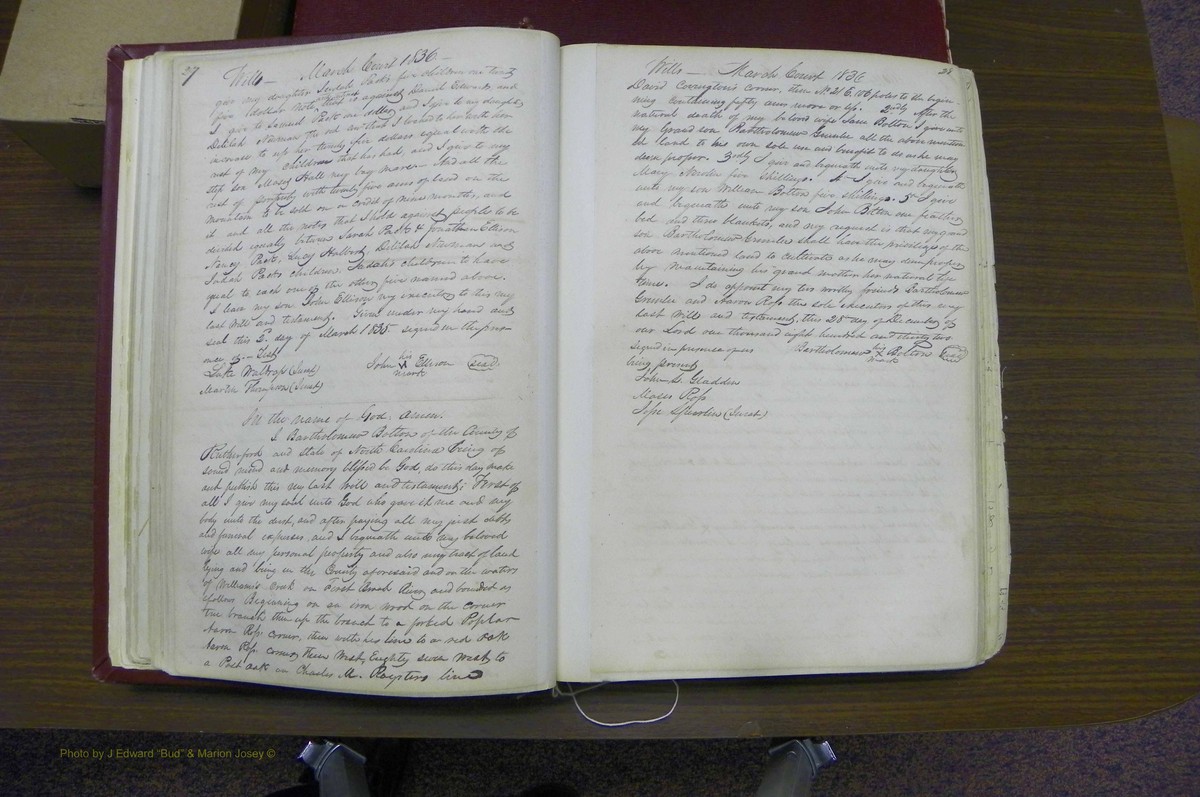 27
Wills — March Court 1836 —
give my daughter Judah Pack's five children one twenty
five dollar Note that is against Daniel Edwards, and
I give to Samuel Pack one dollar, and I give to my daughter
Delilah Norman the red cow that I loaned to her with her
increase to up her twenty five dollars equal with the
rest of my children that has had, and I give to my
step son Mosey Hall my bay mare And all the
rest of property with twenty five acres of land on the
mountain to be sold on a credit of nine months, and
it and all the notes that I hold against people to be
divided equally between Sarah Pack & Jonathan Ellison
Nancy Pack, Lucy Delilah Norman and
Judah Packs children. Judahs children to have
equal to each one of the other five named above.
I leave my son John Ellison my executor to this my
last will and testament. Given under my hand and
seal this 2. day of March 1835. signed in the pres-
ence of — Test
Luke Waldrop (Jurat) John his X mark Ellison (seal)
Martin Thompson (Jurat)
In the name of God, amen.
I Bartholomew Bolton of the County of
Rutherford and State of North Carolina being of
sound mind and memory blessed be God, do this day make
and publish this my last will and testament; First of
all I give my soul unto God who gave it me and my
body unto the dust, and after paying all my just debts
and funeral expenses, and I bequeath unto my beloved
wife all my personal property and also my tract of land
lying and being in the County aforesaid and on the waters
of William's Creek on First Broad River and bounded as
follows Beginning on an iron wood on the corner
tree branch then up the branch to a forked Poplar
Aaron Ross corner, then with his line to a red oak
Aaron Ross corner, then West, Eighty seven West to
a Post oak in Charles M. Raysters line
28
Wills — March Court 1836
David Covington's corner, then No 21 E. 106 poles to the begin-
ning containing fifty acres more or less. 2ndly After the
natural death of my beloved wife Jane Bolton I give unto
my Grand son Bartholomew Grindler all the above mention
ed land to his own sole use and benefit to do as he may
deem proper. 3rdly I give and bequeath unto my daughter
Mary five shillings. 4th I give and bequeath
unto my son William Bolton five shillings. 5th I give
and bequeath unto my son John Bolton one feather
bed and three blankets, and my request is that my grand
son Bartholomew Grindler shall have the privilege of the
above mentioned land to cultivate as he may deem proper
by maintaining his grand mother her natural life
time. I do appoint my two worthy friends Bartholomew
Grindler and Aaron Ross the sole executors of this my
last will and testament, this 28th day of December of
our Lord one thousand eight hundred and thirty two
signed in presence of us Bartholomew his X mark Bolton (seal)
being present
John S. Gladden
Moses Ross
Jesse Spurlin (Jurat)
Photo by J Edward "Bud" & Marion Josey ©